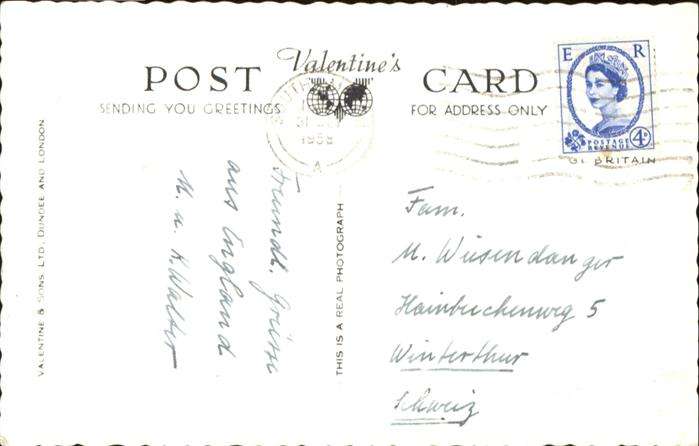 Valentine's
POST CARD
SENDING YOU GREETINGS
FOR ADDRESS ONLY
E R
POSTAGE
REVENUE
4D
BRITAIN
1958
A
VALENTINE & SONS LTD., DUNDEE AND LONDON
THIS IS A REAL PHOTOGRAPH
Freundl. Grüsse
aus England
M. u. K. Walter
Fam.
M. Wiesendanger
Hainbuchenweg 5
Winterthur
Schweiz